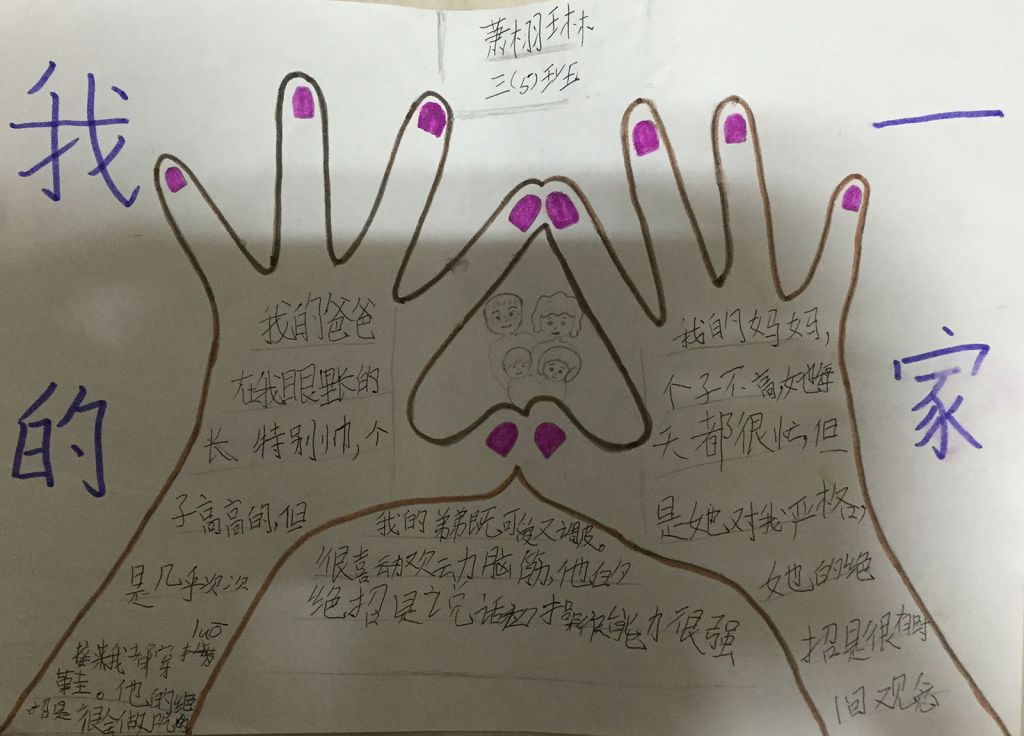 萧栩琳
三(5)班
我的
一家
我的爸爸
在我眼里长的
长特别帅,个
子高高的,但
是几乎次次
luō
接来我都穿拖
鞋。他的绝
招是很会做
我的弟弟既可爱又调皮。
很喜动欢动力脑筋,他的
绝招是说话和操作能力很强
我的妈妈,
个子不高,她每
天都很忙,但
是她对我严格,
她的绝
招是很有时
间观念